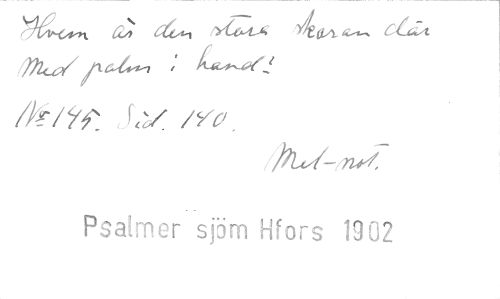 Hvem är den stora skaran där
Med palm i hand?
No 145. Sid. 140.
Mel-not.
Psalmer sjöm Hfors 1902